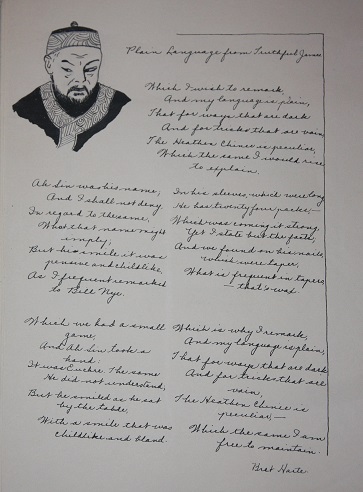 Plain Language from Truthful James
Which I wish to remark,
And my language is plain,
That for ways that are dark
And for tricks that are vain,
The Heathen Chinee is peculiar,
Which the same I would rise
to explain.
Ah Sin was his name;
And I shall not deny,
In regard to the same,
What that name might
imply;
But his smile it was
pensive and childlike,
As I frequent remarked
to Bill Nye.
Which we had a small
game,
And Ah Sin took a
hand:
It was Euchre. The same
He did not understand;
But he smiled as he sat
by the table,
With a smile that was
childlike and bland.
In his sleeves, which were long
He has twenty four packs,—
Which was coming it strong,
Yet I state but the facts;
And we found on his nails,
which were taper,
What is frequent in tapers
— that's wax.
Which is why I remark,
And my language is plain,
That for ways that are dark
And for tricks that are
vain,
The Heathen Chinee is
peculiar,—
Which the same I am
free to maintain.
Bret Harte